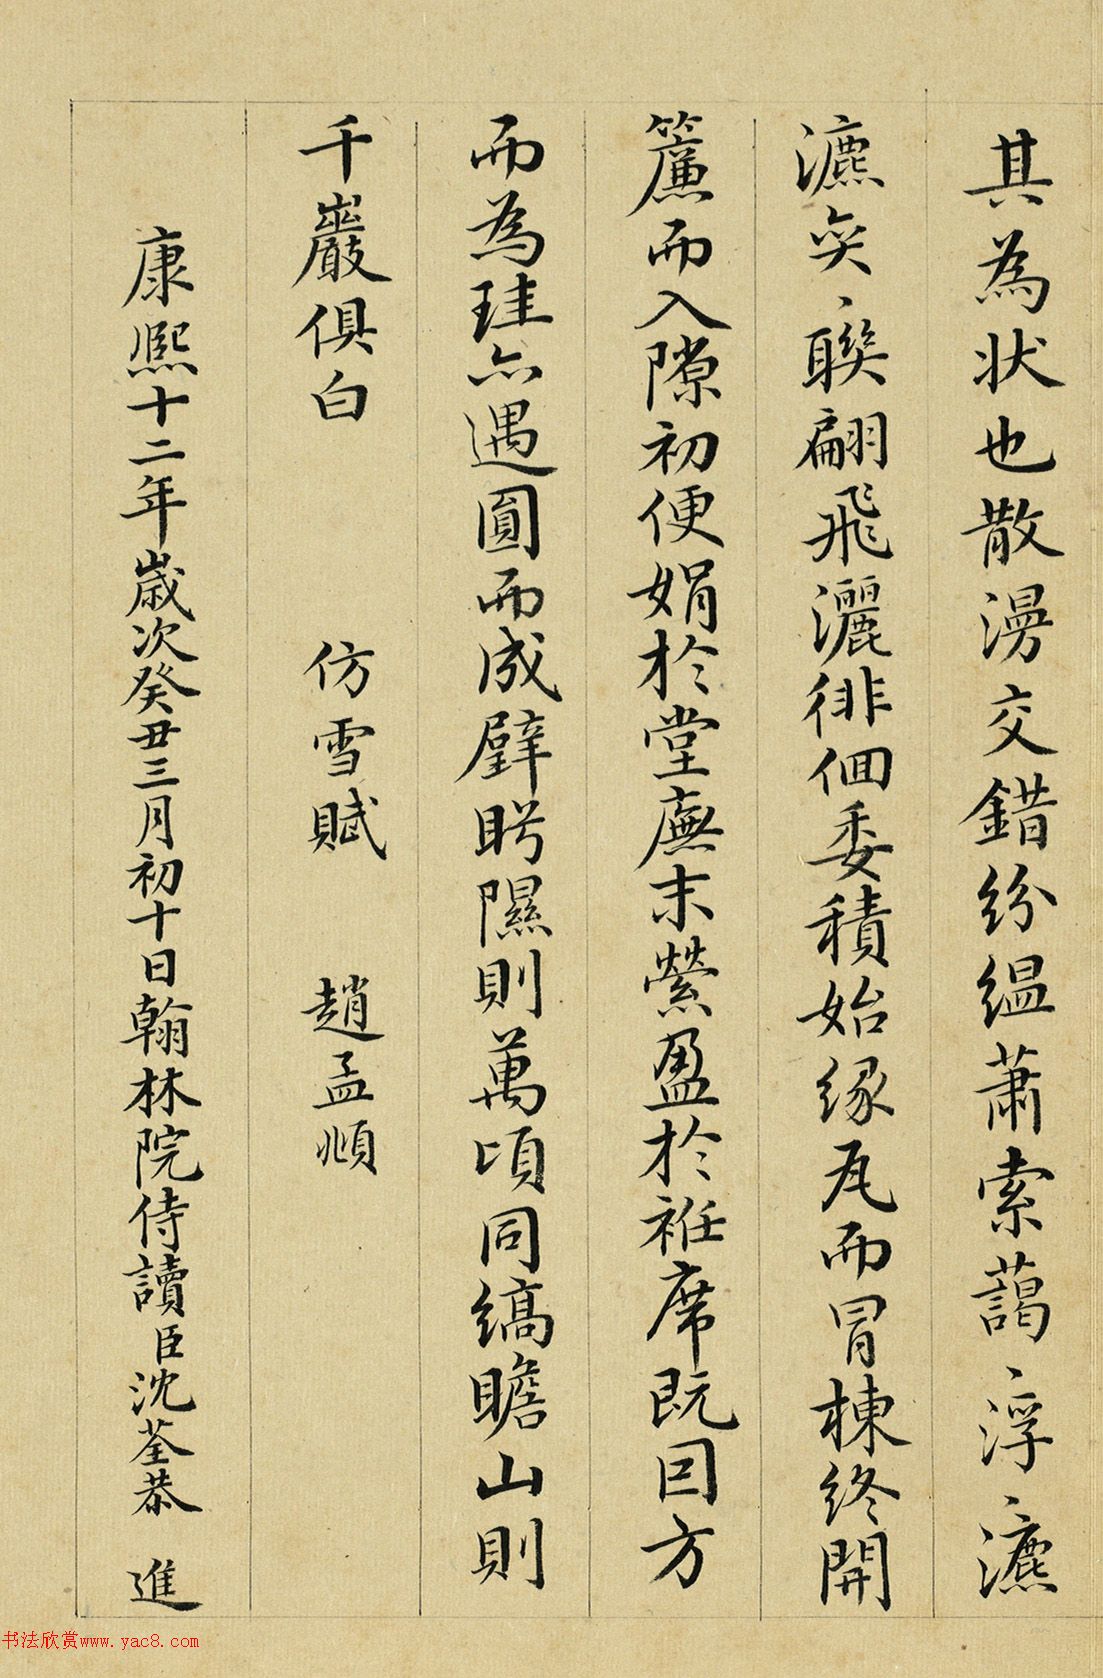 其為狀也散漫交錯紛縕蕭索藹、浮、瀌
瀌奕、聯翩飛灑徘佪委積始緣瓦而冒棟終開
簾而入隙初便娟於堂廡末縈盈於袵席既囙方
而為珪亦遇圓而成璧眄隰則萬頃同縞瞻山則
千巖俱白 仿雪賦 趙孟頫
康熙十二年歲次癸丑三月初十日翰林院侍讀臣沈荃恭 進
书法欣赏www.yac8.com